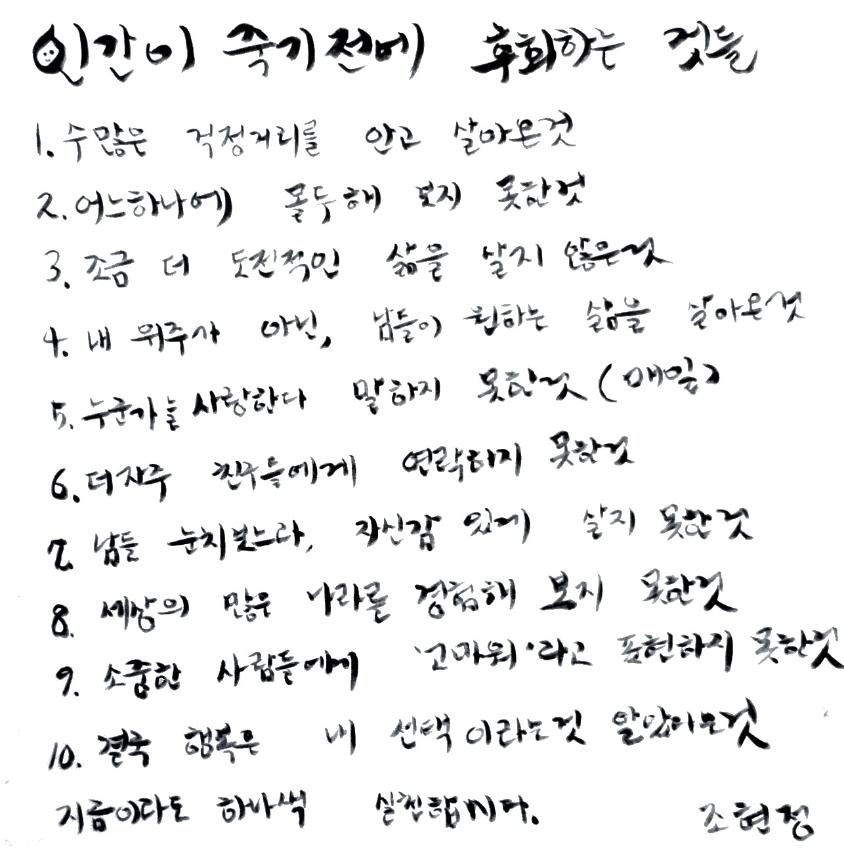 인간이 죽기전에 후회하는 것들
1. 수많은 걱정거리를 안고 살아온것
2. 어느하나에 몰두해 보지 못한것
3. 조금 더 도전적인 삶을 살지 않은것
4. 내 위주가 아닌, 남들이 원하는 삶을 살아온것
5. 누군가를 사랑한다 말하지 못한것 (매일)
6. 더자주 친구들에게 연락하지 못한것
7. 남들 눈치보느라, 자신감 있게 살지 못한것
8. 세상의 많은 나라를 경험해 보지 못한것
9. 소중한 사람들에게 '고마워'라고 표현하지 못한것
10. 결국 행복은 내 선택이라는것
지금이라도 하나씩 실천합시다. 조현정